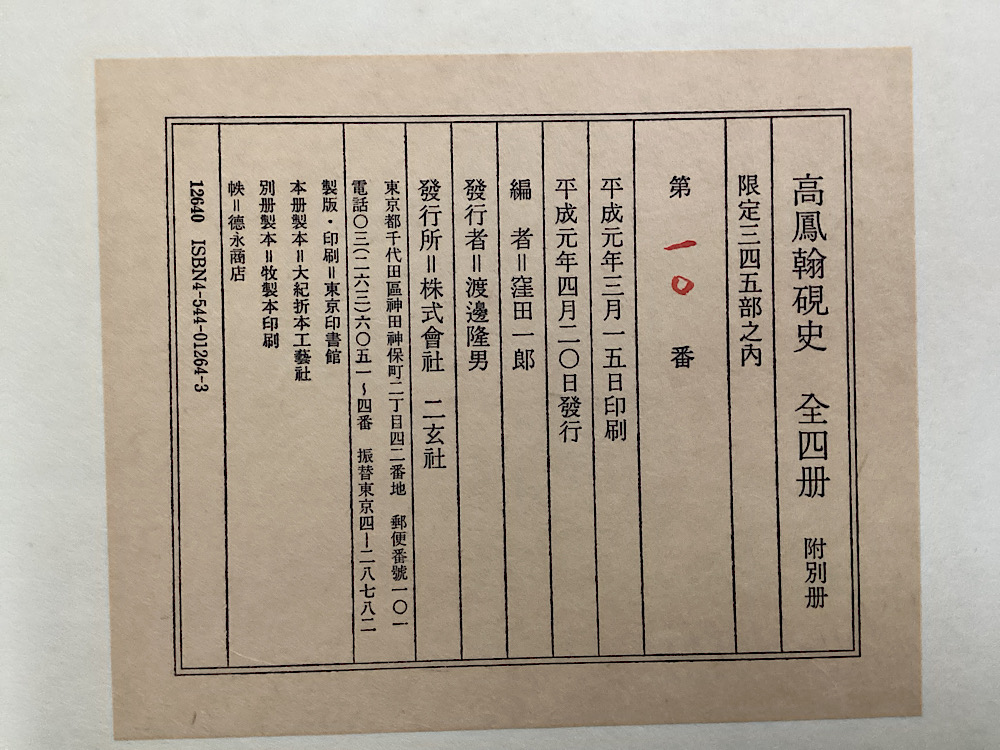 高鳳翰硯史　全四册　附別册
限定三四五部之內
第　一〇　番
平成元年三月一五日印刷
平成元年四月二〇日發行
編　者＝窪田一郎
發行者＝渡邊隆男
發行所＝株式會社　二玄社
東京都千代田區神田神保町二丁目四二番地　郵便番號一〇一
電話〇三（二六三）六〇五一～四番　振替東京四―二八七八二
製版・印刷＝東京印書館
本册製本＝大紀折本工藝社
別册製本＝牧製本印刷
帙＝德永商店
12640　ISBN4-544-01264-3